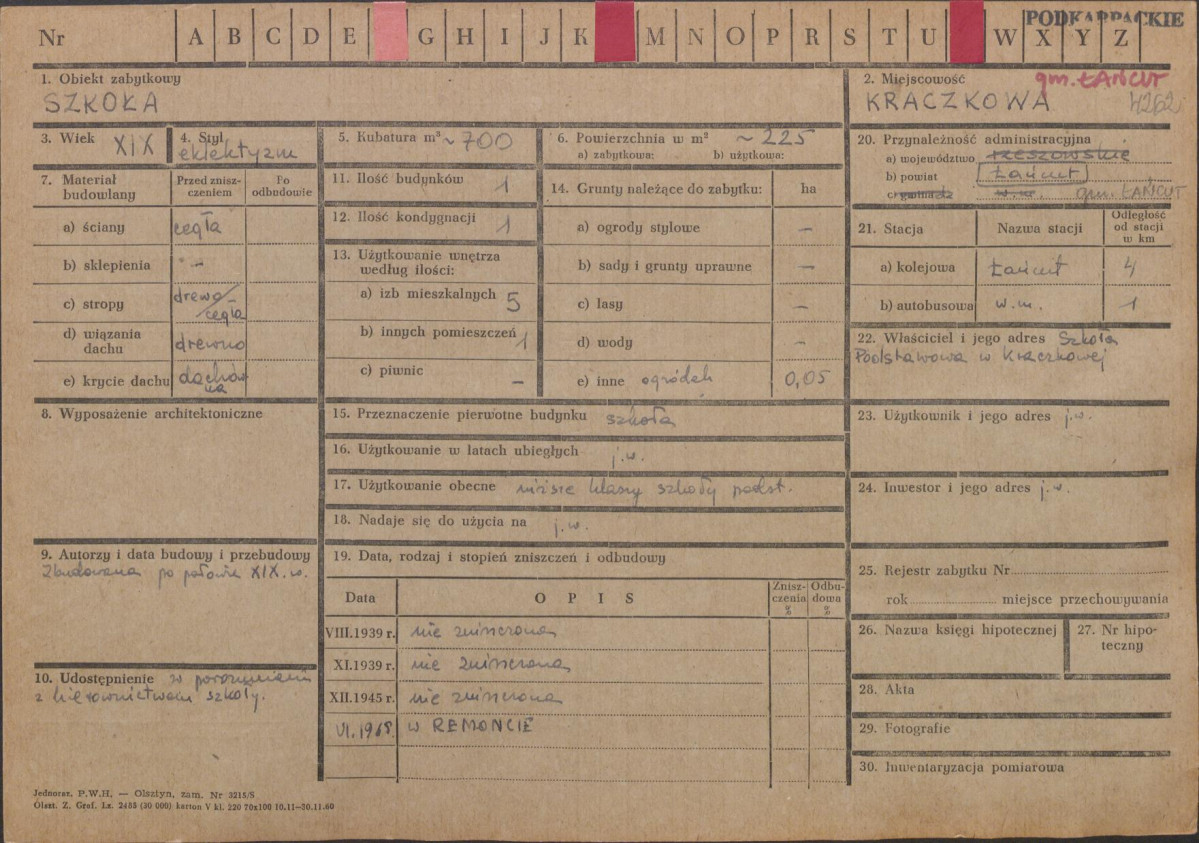 PODKARPACKIE
Nr A B C D E G H I J K M N O P R S T U W X Y Z
1. Obiekt zabytkowy
SZKOŁA
2. Miejscowość gm. ŁAŃCUT
KRACZKOWA 4262
3. Wiek XIX
4. Styl
eklektyzm
5. Kubatura m³ ~ 700
6. Powierzchnia w m² ~ 225
a) zabytkowa: b) użytkowa:
7. Materiał budowlany
Przed znisz-
czeniem
Po
odbudowie
a) ściany cegła
b) sklepienia -
c) stropy drewo-
cegła
d) wiązania
dachu drewno
e) krycie dachu dachów-
ka
8. Wyposażenie architektoniczne
9. Autorzy i data budowy i przebudowy
Zbudowana po połowie XIX. w.
10. Udostępnienie w porozumieniu
z kierownictwem szkoły.
11. Ilość budynków 1
12. Ilość kondygnacji 1
13. Użytkowanie wnętrza
według ilości:
a) izb mieszkalnych 5
b) innych pomieszczeń 1
c) piwnic –
14. Grunty należące do zabytku: ha
a) ogrody stylowe –
b) sady i grunty uprawne –
c) lasy –
d) wody –
e) inne ogródek 0,05
15. Przeznaczenie pierwotne budynku szkoła
16. Użytkowanie w latach ubiegłych j.w.
17. Użytkowanie obecne niższe klasy szkoły podst.
18. Nadaje się do użycia na j.w.
19. Data, rodzaj i stopień zniszczeń i odbudowy
Data O P I S
Znisz-
czenia
%
Odbu-
dowa
%
VIII.1939 r. nie zniszczona
XI.1939 r. nie zniszczona
XII.1945 r. nie zniszczona
VI.1965 W REMONCIE
20. Przynależność administracyjna
a) województwo rzeszowskie
b) powiat Łańcut
c) gmina w.m. gm. ŁAŃCUT
21. Stacja Nazwa stacji
Odległość
od stacji
w km
a) kolejowa Łańcut 4
b) autobusowa w.m. 1
22. Właściciel i jego adres Szkoła
Podstawowa w Kraczkowej
23. Użytkownik i jego adres j.w.
24. Inwestor i jego adres j.w.
25. Rejestr zabytku Nr
rok miejsce przechowywania
26. Nazwa księgi hipotecznej
27. Nr hipo-
teczny
28. Akta
29. Fotografie
30. Inwentaryzacja pomiarowa
Jednoraz. P.W.H. — Olsztyn, zam. Nr 3215/S
Olszt. Z. Graf. Lz. 2455 (30 000) karton V kl. 220 70x100 10.11—30.11.60